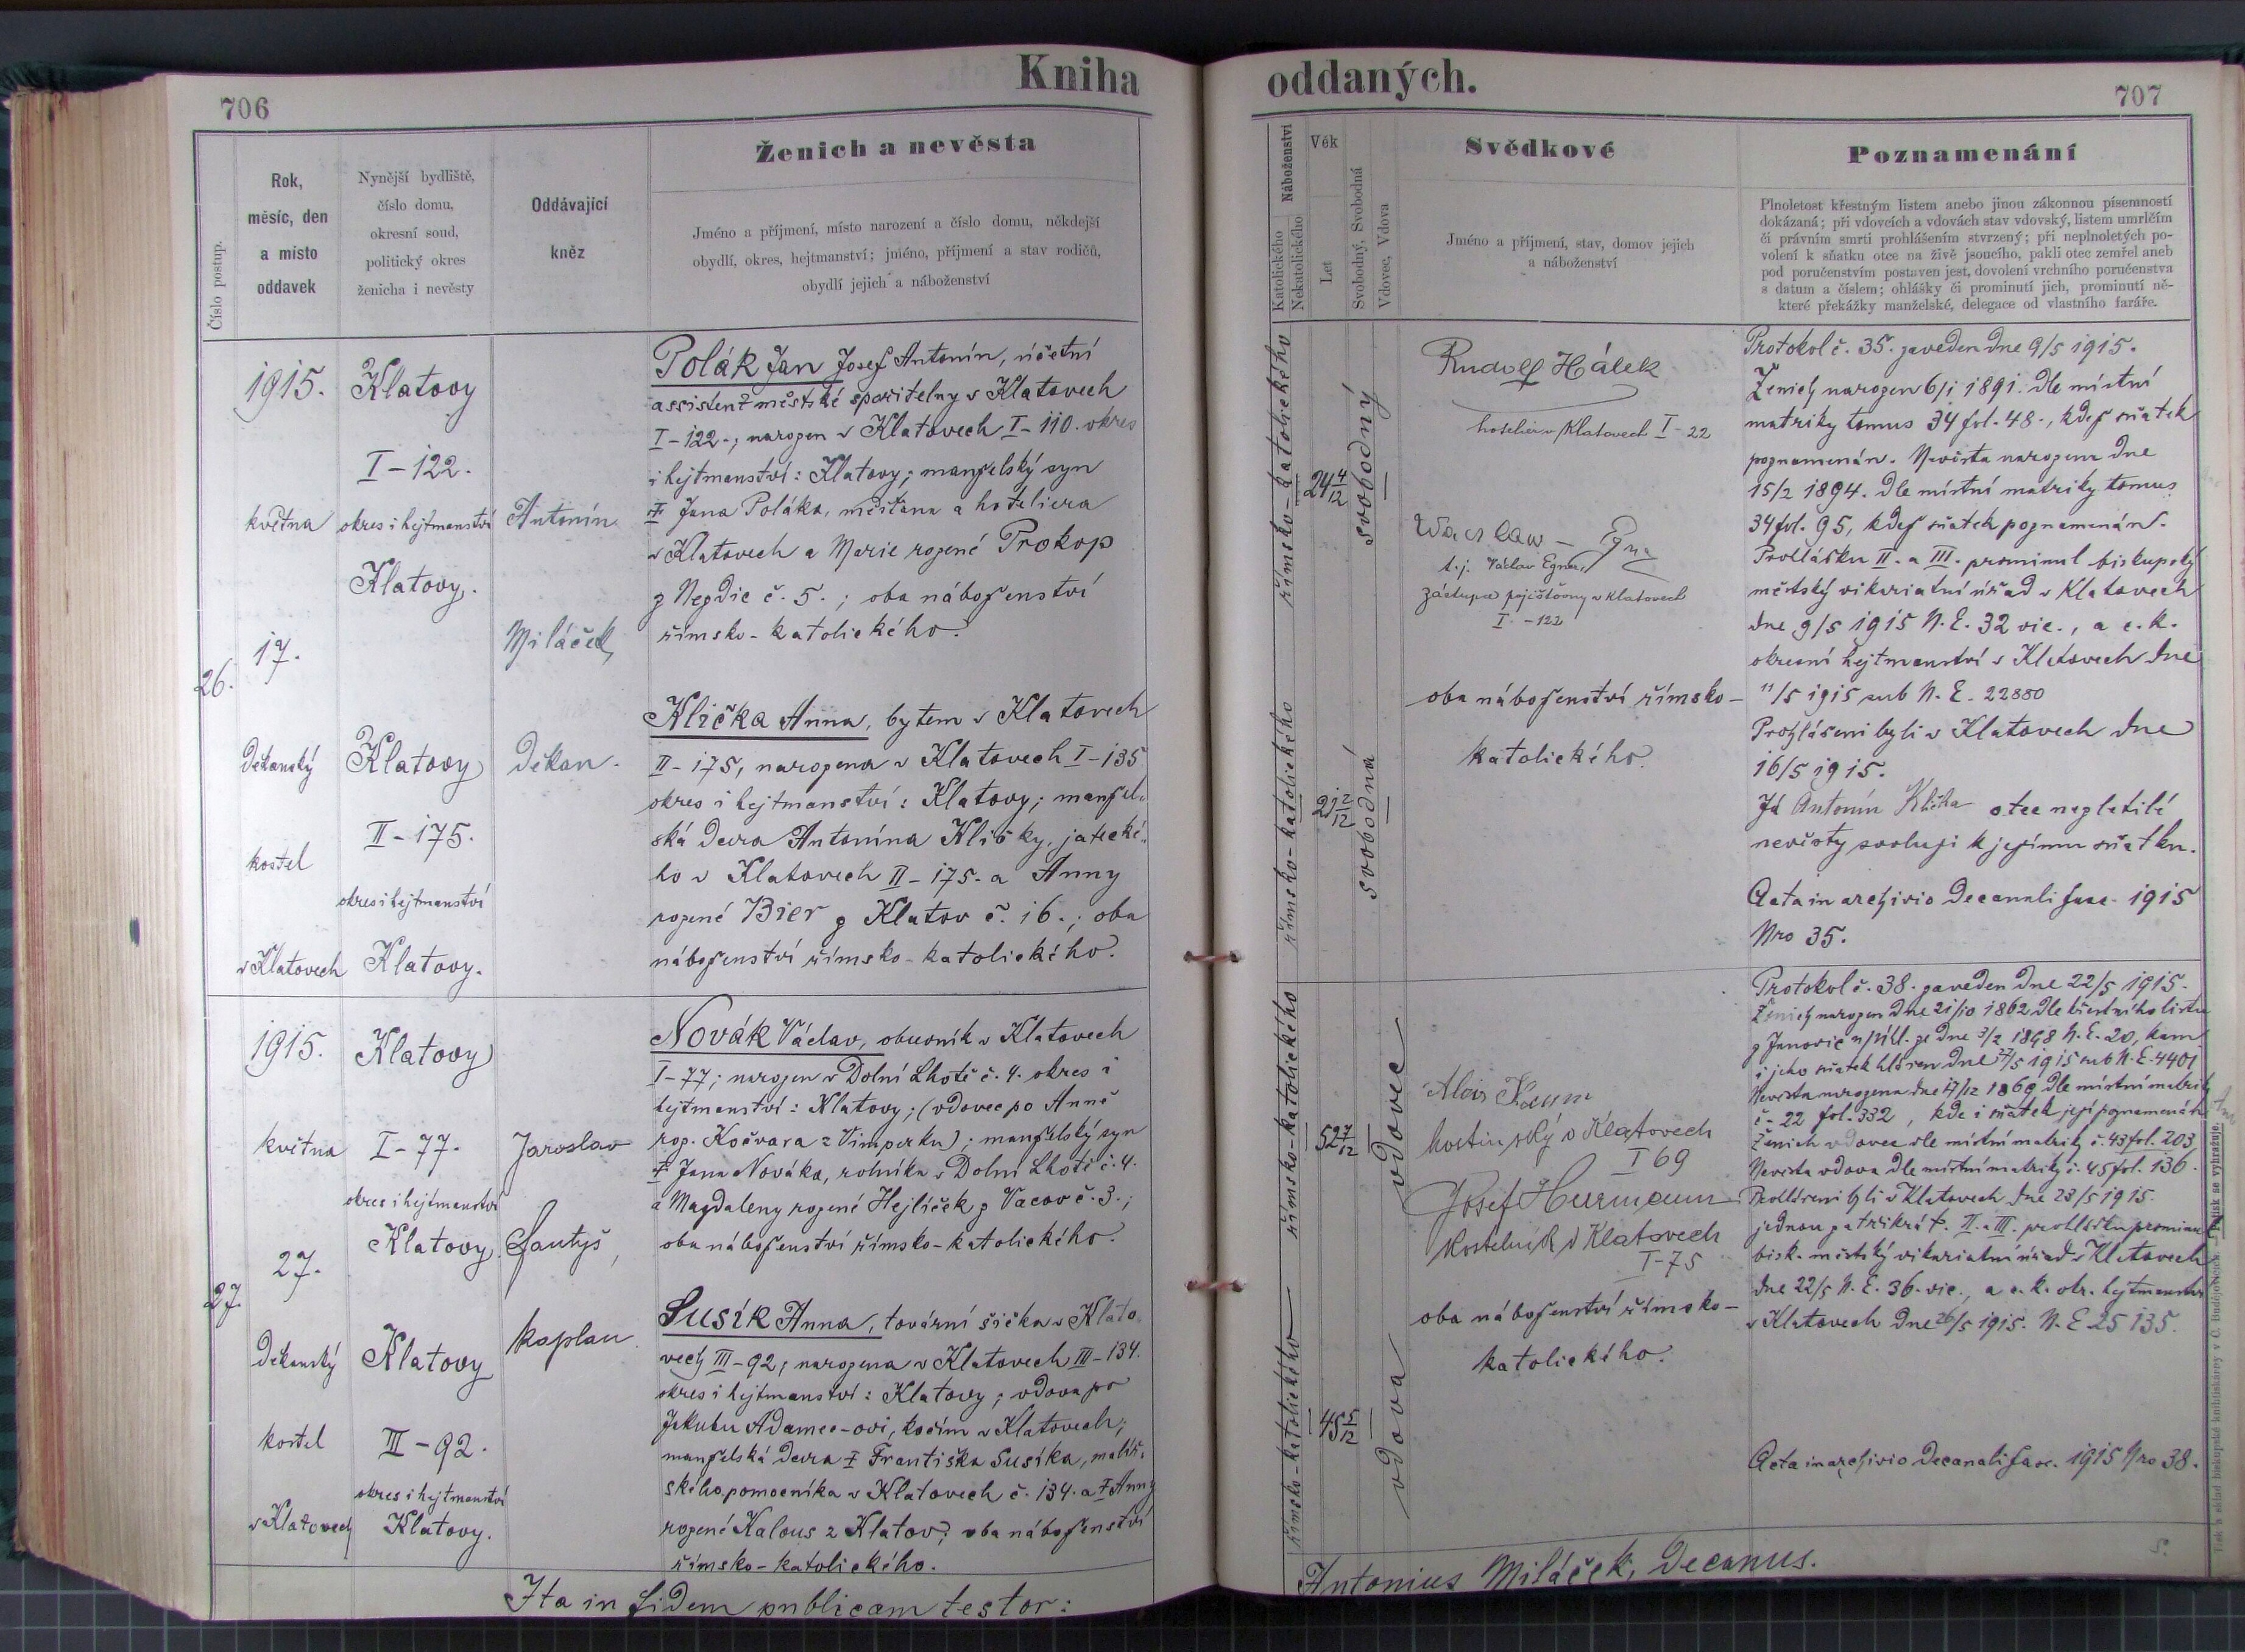 Kniha
oddaných.
706
707
Číslo postup.
Rok,
měsíc, den
a místo
oddavek
Nynější bydliště,
číslo domu,
okresní soud,
politický okres
ženicha i nevěsty
Oddávající
kněz
Ženich a nevěsta
Jméno a příjmení, místo narození a číslo domu, někdejší
obydlí, okres, hejtmanství; jméno, příjmení a stav rodičů,
obydlí jejich a náboženství
Náboženství
Katolického
Nekatolického
Věk
Let
Svobodný, Svobodná
Vdovec, Vdova
Svědkové
Jméno a příjmení, stav, domov jejich
a náboženství
Poznamenání
Plnoletost křestným listem anebo jinou zákonnou písemností
dokázaná; při vdovcích a vdovách stav vdovský, listem umrlčím
či právním smrti prohlášením stvrzený; při neplnoletých po-
volení k sňatku otce na živě jsoucího, pakli otec zemřel aneb
pod poručenstvím postaven jest, dovolení vrchního poručenstva
s datum a číslem; ohlášky či prominutí jich, prominutí ně-
které překážky manželské, delegace od vlastního faráře.
26.
1915.
května
17.
Děkanský
kostel
v Klatovech
Klatovy
I-122.
okres i hejtmanství
Klatovy.
Klatovy
II-175.
okres i hejtmanství
Klatovy.
Antonín
Miláček,
Děkan.
Polák Jan Josef Antonín, účetní
assistent městské spořitelny v Klatovech
I-122.; narozen v Klatovech I-110. okres
i hejtmanství: Klatovy; manželský syn
‡ Jana Poláka, měšťana a hoteliera
v Klatovech a Marie rozené Prokop
z Nezdic č. 5.; oba náboženství
římsko-katolického.
Klička Anna, bytem v Klatovech
II-175, narozena v Klatovech I-135
okres i hejtmanství: Klatovy; manžel-
ská dcera Antonína Kličky, jatecké-
ho v Klatovech II-175. a Anny
rozené Bier z Klatov č. 16.; oba
náboženství římsko-katolického.
římsko-katolického
24 4/12
svobodný
římsko-katolického
21 2/12
svobodná
Rudolf Hálek
hotelier v Klatovech I-22
Waclaw
t.j. Václav Egner,
zástupce pojišťovny v Klatovech
I-122
oba náboženství římsko-
katolického.
Protokol č. 35. zaveden dne 9/5 1915.
Ženich narozen 6/1 1891. dle místní
matriky tomus 34 fol. 48., kdež sňatek
poznamenán. Nevěsta narozena dne
15/2 1894. dle místní matriky tomus
34 fol. 95, kdež sňatek poznamenán.
Prohlášku II. a III. prominul biskupský
městský vikariatní úřad v Klatovech
dne 9/5 1915 N. E. 32 vic., a c. k.
okresní hejtmanství v Klatovech dne
11/5 1915 sub N. E. 22880
Prohlášeni byli v Klatovech dne
16/5 1915.
Já Antonín Klička otec nezletilé
nevěsty svoluji k jejímu sňatku.
Acta in archivio Decanali fasc. 1915
Nro 35.
27.
1915.
května
27.
Děkanský
kostel
v Klatovech
Klatovy
I-77.
okres i hejtmanství
Klatovy.
Klatovy
III-92.
okres i hejtmanství
Klatovy.
Jaroslav
kaplan.
Novák Václav, obuvník v Klatovech
I-77; narozen v Dolní Lhotě č. 4. okres i
hejtmanství: Klatovy; (vdovec po Anně
roz. Kočvara z Vimperku); manželský syn
‡ Jana Nováka, rolníka v Dolní Lhotě č. 4.
a Magdaleny rozené Hejlíček z Vacov č. 3.;
oba náboženství římsko-katolického.
Susík Anna, tovární šička v Klato
vech III-92; narozena v Klatovech III-134.
okres i hejtmanství: Klatovy; vdova po
Jakubu Adamec-ovi, kočím v Klatovech;
manželská dcera ‡ Františka Susíka, malíř-
ského pomocníka v Klatovech č. 134. a ‡ Anny
rozené Kalous z Klatov; oba náboženství
římsko-katolického.
římsko-katolického
52 7/12
vdovec
římsko-katolického
45 5/12
vdova
Alois
hostinský v Klatovech
I 69
Josef Hurmann
Kostelník v Klatovech
I-75
oba náboženství římsko-
katolického.
Protokol č. 38. zaveden dne 22/5 1915.
Ženich narozen dne 21/10 1862 dle křestního listu
z Janovic n/Úhl. ze dne 3/2 1898 N. E. 20, kam
i jeho sňatek hlášen dne 27/5 1915 sub N. E. 4401
Nevěsta narozena dne 17/12 1869 dle místní matriky
č. 22 fol. 332, kde i sňatek její poznamenán
Ženich vdovec dle místní matriky č. 43 fol. 203
Nevěsta vdova dle místní matriky č. 45 fol. 136.
Prohlášeni byli v Klatovech dne 23/5 1915.
jednou za třikrát. II. a III. prohlášku prominul
bisk. městský vikariatní úřad v Klatovech
dne 22/5 N. E. 36. vic., a c. k. okr. hejtmanství
v Klatovech dne 26/5 1915. N. E 25 135.
Acta in archivio Decanali fasc. 1915 Nro 38.
Ita in fidem publicam testor:
Antonius Miláček, Decanus.
Tisk a sklad biskupské knihtiskárny v Č. Budějovicích. — Patisk se vyhražuje.